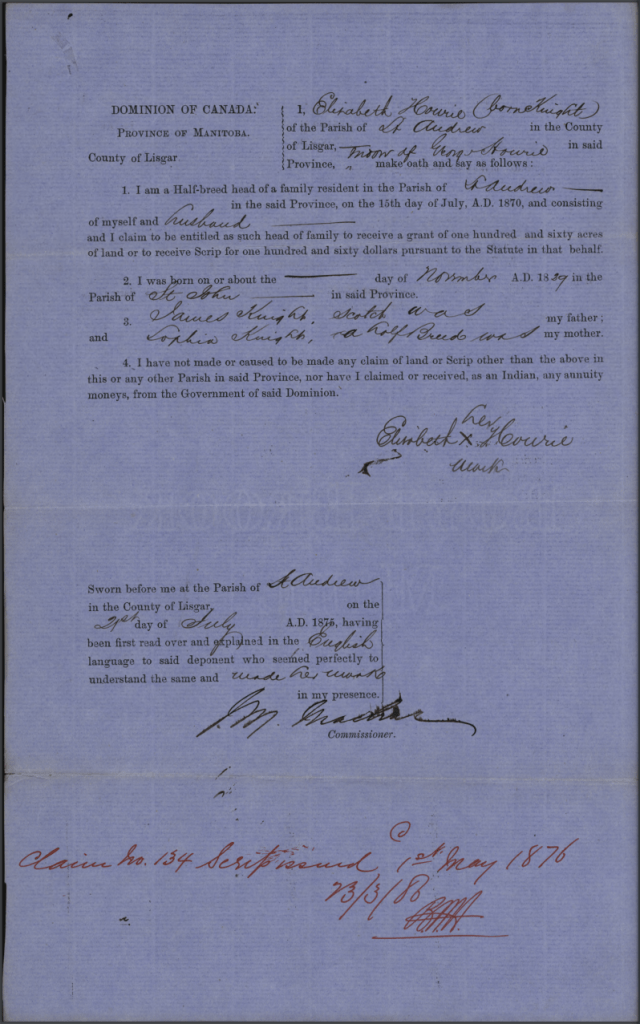 DOMINION OF CANADA.
PROVINCE OF MANITOBA.
County of Lisgar
I, Elisabeth Howrie (born Knight)
of the Parish of St Andrew in the County
of Lisgar, Widow of George Howrie in said
Province, " make oath and say as follows :
1. I am a Half-breed head of a family resident in the Parish of St Andrew
in the said Province, on the 15th day of July, A.D. 1870, and consisting
of myself and husband
and I claim to be entitled as such head of family to receive a grant of one hundred and sixty acres
of land or to receive Scrip for one hundred and sixty dollars pursuant to the Statute in that behalf.
2. I was born on or about the day of November A.D. 1829 in the
Parish of St John in said Province.
3. James Knight, Scotch was my father ;
and Sophia Knight, a half Breed was my mother.
4. I have not made or caused to be made any claim of land or Scrip other than the above in
this or any other Parish in said Province, nor have I claimed or received, as an Indian, any annuity
moneys, from the Government of said Dominion.
her
Elisabeth X Howrie
mark
Sworn before me at the Parish of St Andrew
in the County of Lisgar on the
21st day of July A.D. 1875, having
been first read over and explained in the English
language to said deponent who seemed perfectly to
understand the same and made her mark
in my presence.
J. M.
Commissioner.
C
Claim No. 134 Scrip issued 1st May 1876
23/3/